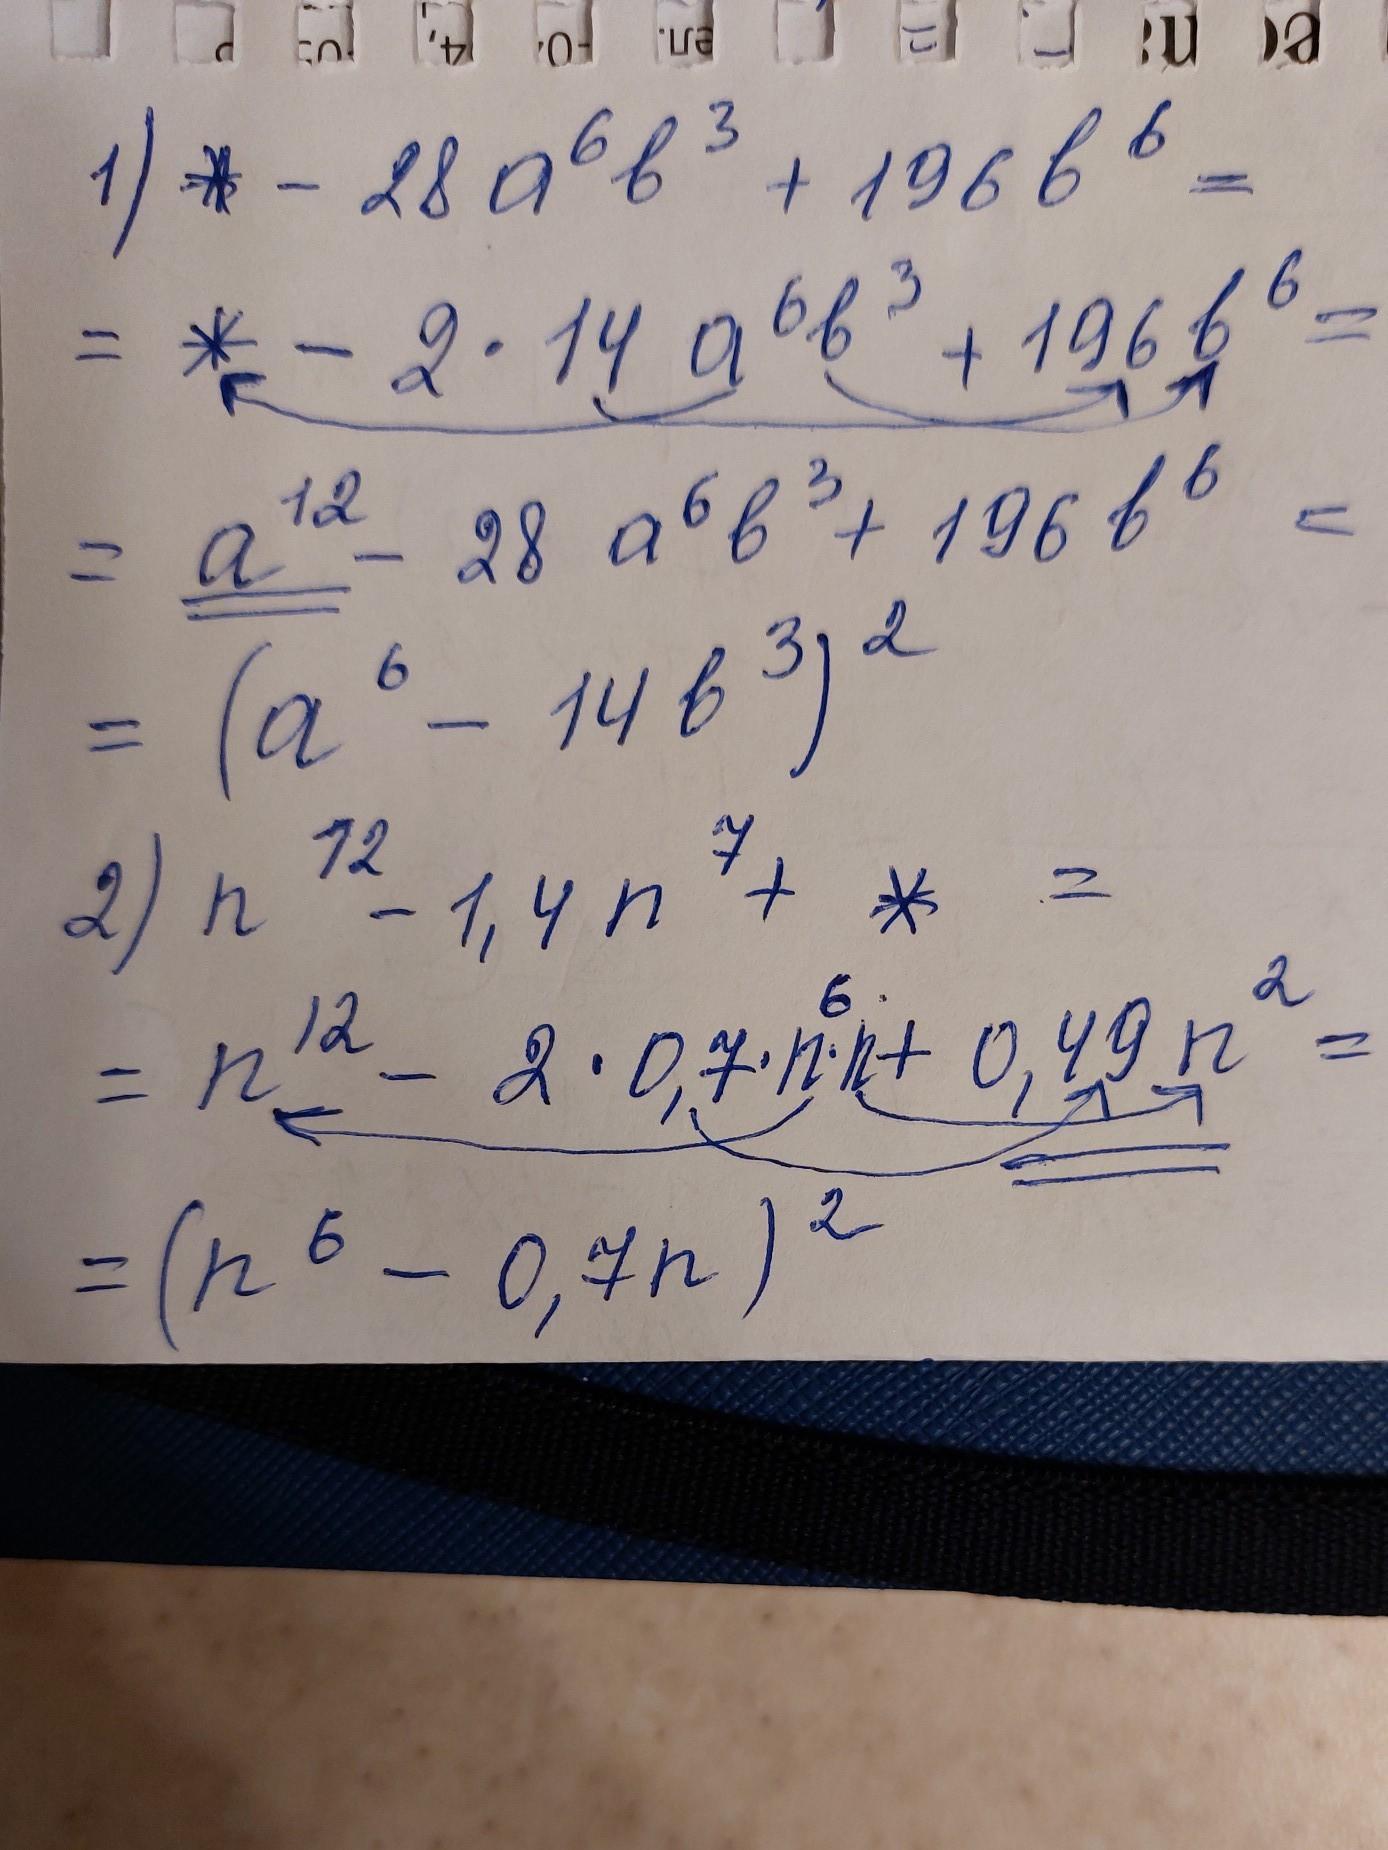 1) * - 28a⁶b³ + 196b⁶ =
= * - 2·14 a⁶b³ + 196b⁶ =
= a¹² - 28 a⁶b³ + 196b⁶ =
= (a⁶ - 14b³)²
2) n¹² - 1,4n⁷ + * =
= n¹² - 2·0,7·n⁶·n + 0,49n² =
= (n⁶ - 0,7n)²